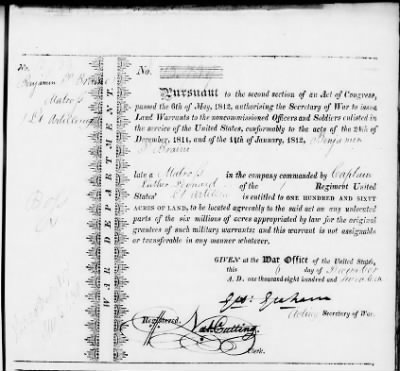 No.
Benjamin P
Matross
1 Lt Artillery
WAR DEPARTMENT.
No.
Pursuant to the second section of an Act of Congress,
passed the 6th of May, 1812, authorising the Secretary of War to issue
Land Warrants to the noncommissioned Officers and Soldiers enlisted in
the service of the United States, conformably to the acts of the 24th
December, 1811, and of the 11th January, 1812, Benjamin
P
late a Matross in the company commanded by Captain
Luther Leonard of the 1 Regiment United
States' Lt Artillery is entitled to ONE HUNDRED AND SIXTY
ACRES OF LAND, to be located agreeably to the said act on any unlocated
parts of the six millions of acres appropriated by law for the original
grantees of such military warrants; and this warrant is not assignable
or transferable in any manner whatever.
GIVEN at the War Office of the United States,
this 6 day of December
A. D. one thousand eight hundred and Seventeen
Geo: Graham
Acting Secretary of War.
Registered.
Nath. Cutting
Clerk.